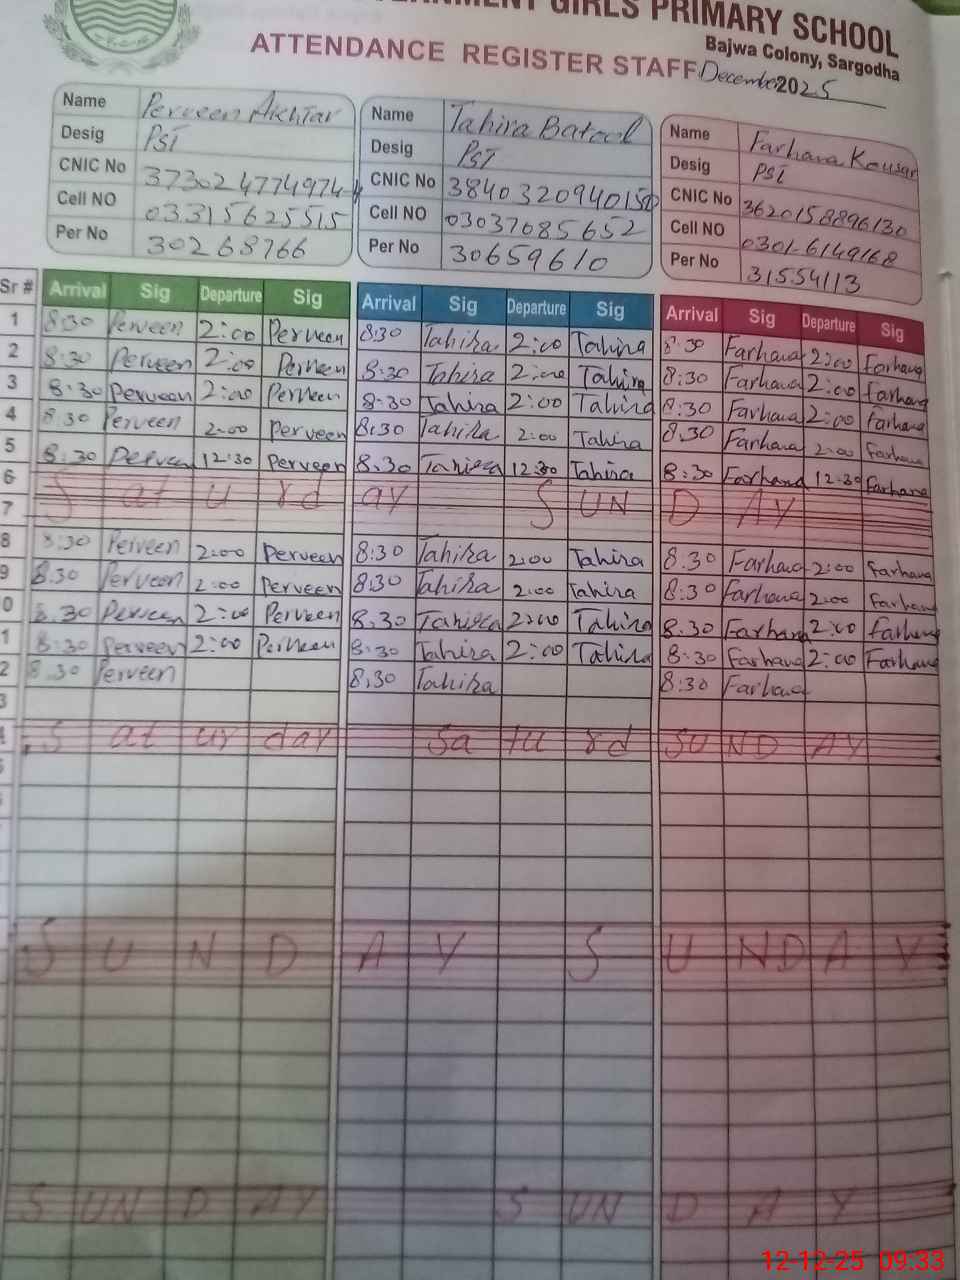 GIRLS PRIMARY SCHOOL
Bajwa Colony, Sargodha
ATTENDANCE REGISTER STAFF December 2025
Name Perveen Akhtar
Desig PST
CNIC No 3730247749744
Cell NO 03315625515
Per No 30268766
Name Tahira Batool
Desig PST
CNIC No 3840320940150
Cell NO 03037685652
Per No 30659610
Name Farhana Kousar
Desig PST
CNIC No 3620158896130
Cell NO 0301-6149168
Per No 31554113
Sr # Arrival Sig Departure Sig Arrival Sig Departure Sig Arrival Sig Departure Sig
1 8:30 Perveen 2:00 Perveen 8:30 Tahira 2:00 Tahira 8:30 Farhana 2:00 Farhana
2 8:30 Perveen 2:00 Perveen 8:30 Tahira 2:00 Tahira 8:30 Farhana 2:00 Farhana
3 8:30 Perveen 2:00 Perveen 8:30 Tahira 2:00 Tahira 8:30 Farhana 2:00 Farhana
4 8:30 Perveen 2:00 Perveen 8:30 Tahira 2:00 Tahira 8:30 Farhana 2:00 Farhana
5 8:30 Perveen 12:30 Perveen 8:30 Tahira 12:30 Tahira 8:30 Farhana 12:30 Farhana
6 Saturday SUNDAY
7
8 8:30 Perveen 2:00 Perveen 8:30 Tahira 2:00 Tahira 8:30 Farhana 2:00 Farhana
9 8:30 Perveen 2:00 Perveen 8:30 Tahira 2:00 Tahira 8:30 Farhana 2:00 Farhana
0 8:30 Perveen 2:00 Perveen 8:30 Tahira 2:00 Tahira 8:30 Farhana 2:00 Farhana
1 8:30 Perveen 2:00 Perveen 8:30 Tahira 2:00 Tahira 8:30 Farhana 2:00 Farhana
2 8:30 Perveen 8:30 Tahira 8:30 Farhana
3
4 Saturday Saturd SUNDAY
SUNDAY SUNDAY
SUNDAY SUNDAY
12-12-25 09:33